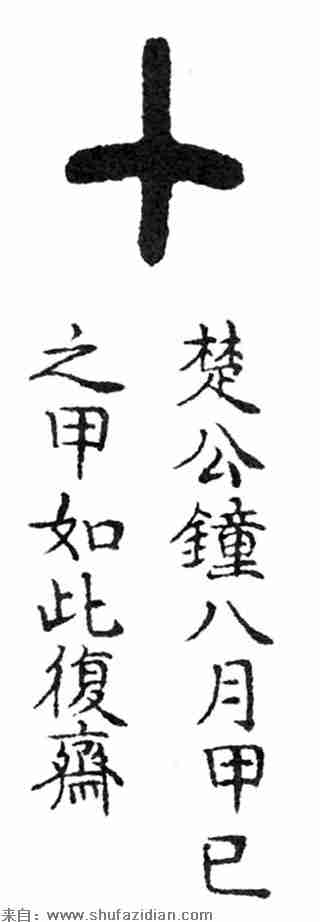 十
楚公鐘八月甲巳
之甲如此復齋
来自：www.shufazidian.com